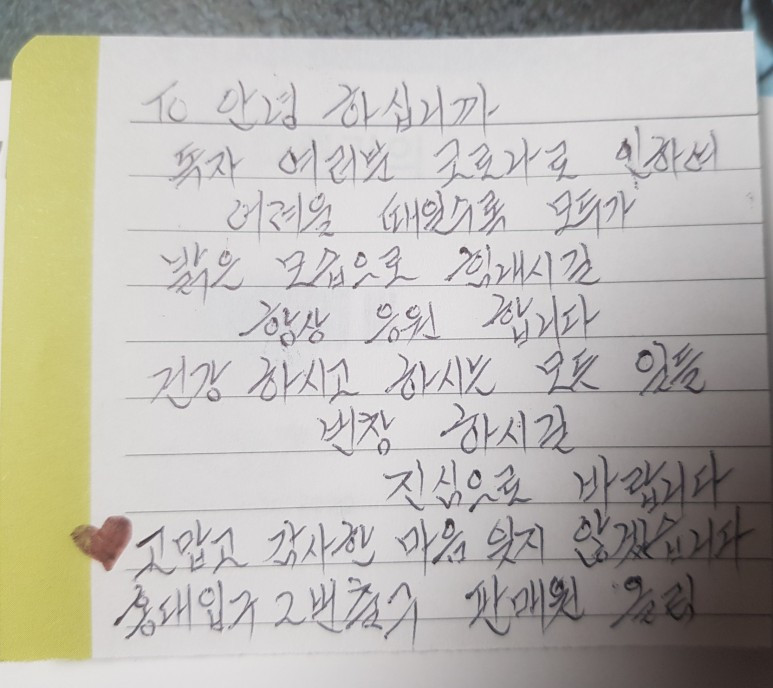 To 안녕 하십니까
독자 여러분 코로나로 인하여
어려울 때일수록 모두가
밝은 모습으로 힘내시길
항상 응원 합니다
건강 하시고 하시는 모든 일들
번창 하시길
진심으로 바랍니다
고맙고 감사한 마음 잊지 않겠습니다
홍대입구 2번출구 판매원 올림